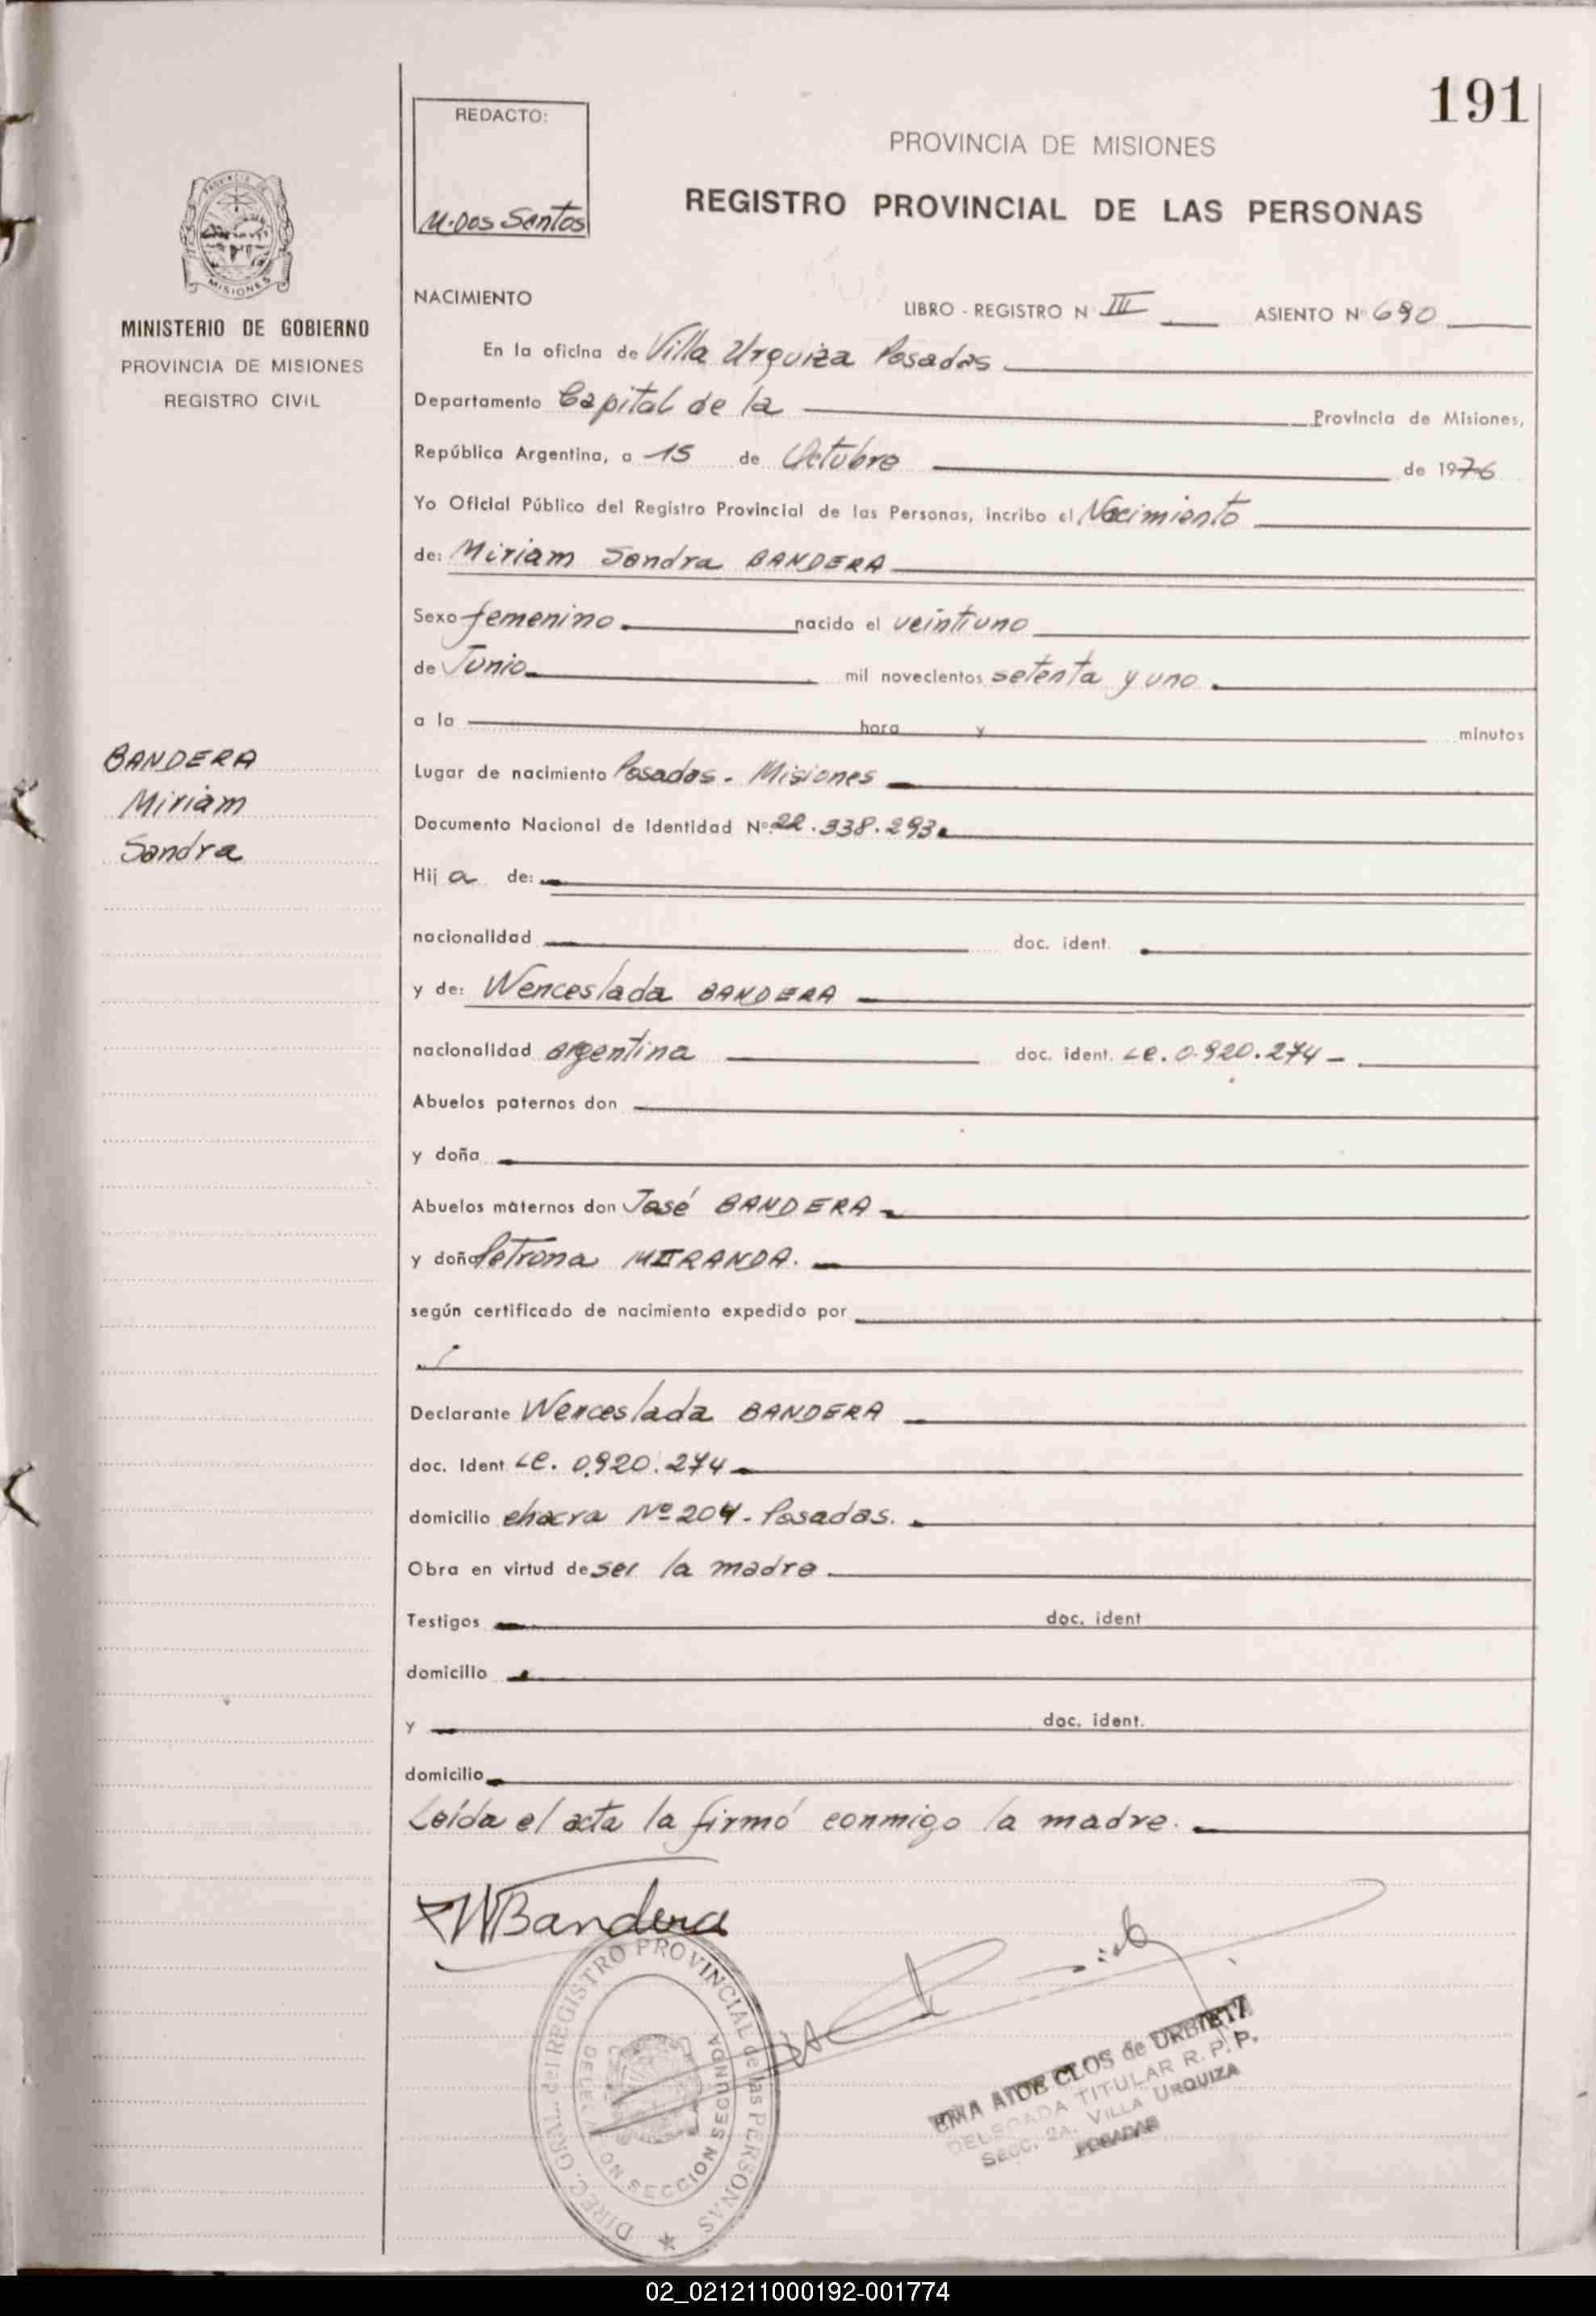 191
REDACTO:
M. Dos Santos
PROVINCIA DE MISIONES
REGISTRO PROVINCIAL DE LAS PERSONAS
PROVINCIA DE
MISIONES
MINISTERIO DE GOBIERNO
PROVINCIA DE MISIONES
REGISTRO CIVIL
NACIMIENTO
LIBRO - REGISTRO N III ASIENTO Nº 690
En la oficina de Villa Urquiza Posadas
Departamento Capital de la Provincia de Misiones,
República Argentina, a 15 de Octubre de 1976
Yo Oficial Público del Registro Provincial de las Personas, incribo el Nacimiento
de: Miriam Sandra BANDERA
Sexo femenino. nacido el veintiuno
de Junio mil novecientos setenta y uno.
a la hora y minutos
BANDERA
Miriam
Sandra
Lugar de nacimiento Posadas - Misiones
Documento Nacional de Identidad Nº 22.338.293
Hij a de:
nacionalidad doc. ident.
y de: Wenceslada BANDERA
nacionalidad argentina doc. ident. LC. 0.920.274 -
Abuelos paternos don
y doña
Abuelos maternos don José BANDERA
y doña Petrona MIRANDA.
según certificado de nacimiento expedido por
Declarante Wenceslada BANDERA
doc. Ident LC. 0.920.274
domicilio chacra Nº 204 - Posadas.
Obra en virtud de ser la madre.
Testigos doc. ident
domicilio
y doc. ident.
domicilio
Leída el acta la firmó conmigo la madre.
WBandera
DIREC. GRAL. del REGISTRO PROVINCIAL de las PERSONAS
DELEGACION SECCION SEGUNDA
EMA AIDE CLOS de URBIETA
DELEGADA TITULAR R. P. P.
SECC. 2A. VILLA URQUIZA
POSADAS
02_021211000192-001774